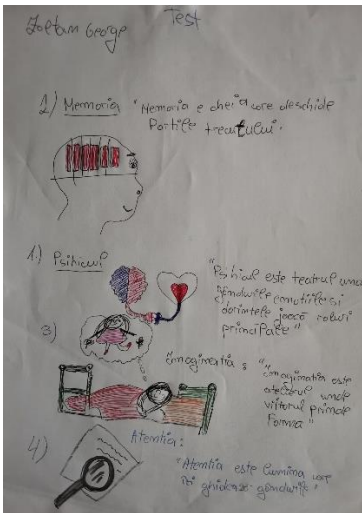 Zoltan George
Test
2) Memoria "Memoria e cheia care deschide
Portile trecutului.
1.) Psihicul
"Psihicul este teatrul unde
gândurile emotiile si
dorintele joacă roluri
principale"
3)
Imaginatia: "Imaginatia este
atelierul unde
viitorul prinde
forma"
4)
Atentia:
"Atentia este lumina care
iti ghideaza gândurile"